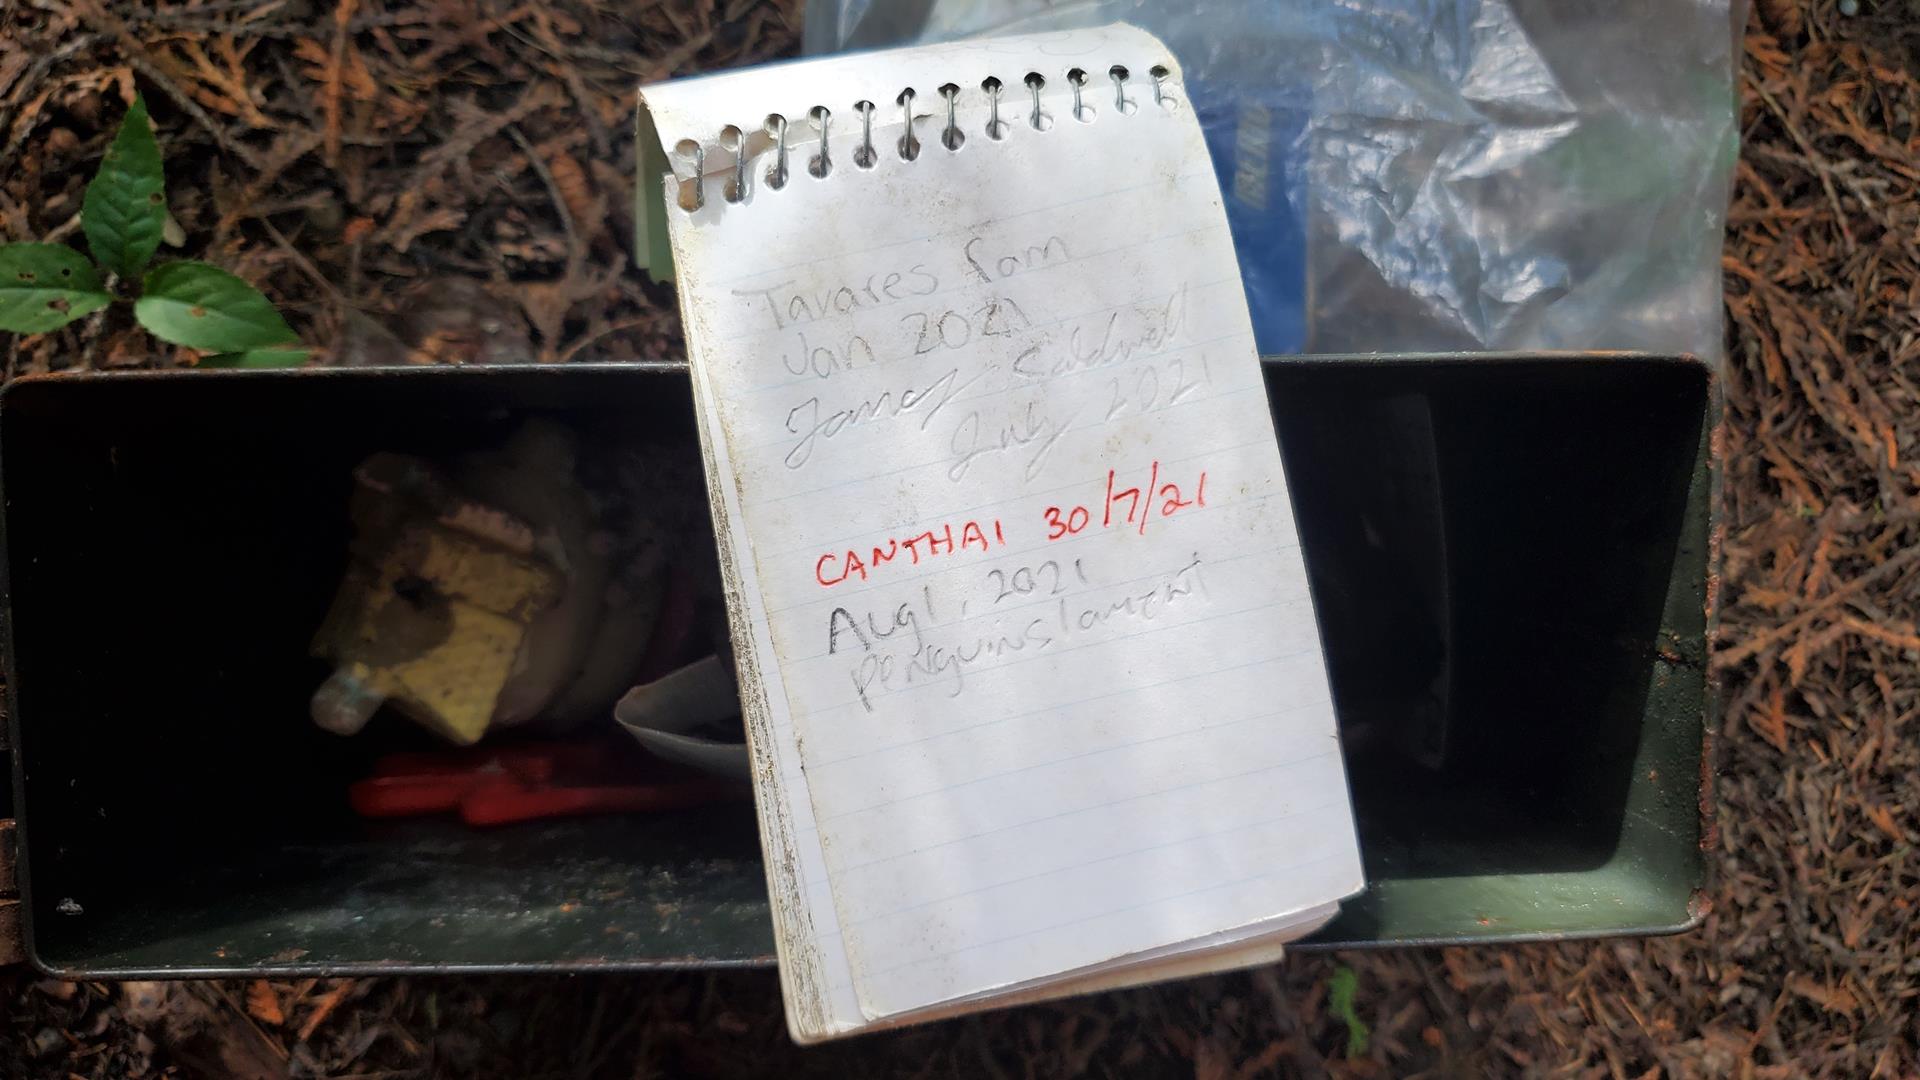 Tavares Fam
Jan 2021
James Caldwell
July 2021
CANTHAI 30/7/21
Aug 1, 2021
penguinslament